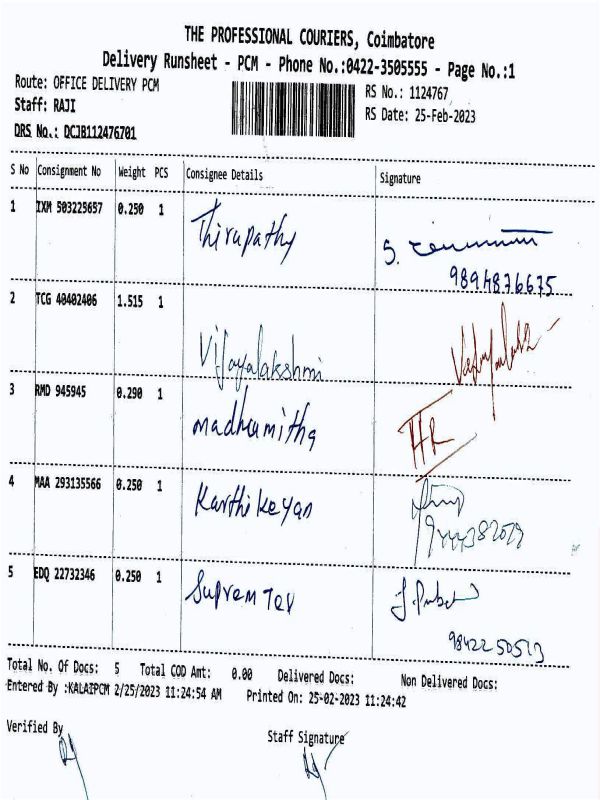 THE PROFESSIONAL COURIERS, Coimbatore
Delivery Runsheet - PCM - Phone No.:0422-3505555 - Page No.:1
Route: OFFICE DELIVERY PCM
RS No.: 1124767
Staff: RAJI
RS Date: 25-Feb-2023
DRS No.: DCJB112476701
S No Consignment No Weight PCS Consignee Details Signature
1 IXM 503225657 0.250 1 Thirupathy
9894876675
2 TCG 40402406 1.515 1
Vijayalakshmi
3 RMD 945945 0.290 1 madhumitha
4 MAA 293135566 0.250 1 Karthikeyan
5 EDQ 22732346 0.250 1 Suprem Tex
98422 50513
Total No. Of Docs: 5 Total COD Amt: 0.00 Delivered Docs: Non Delivered Docs:
Entered By :KALAIPCM 2/25/2023 11:24:54 AM Printed On: 25-02-2023 11:24:42
Verified By
Staff Signature